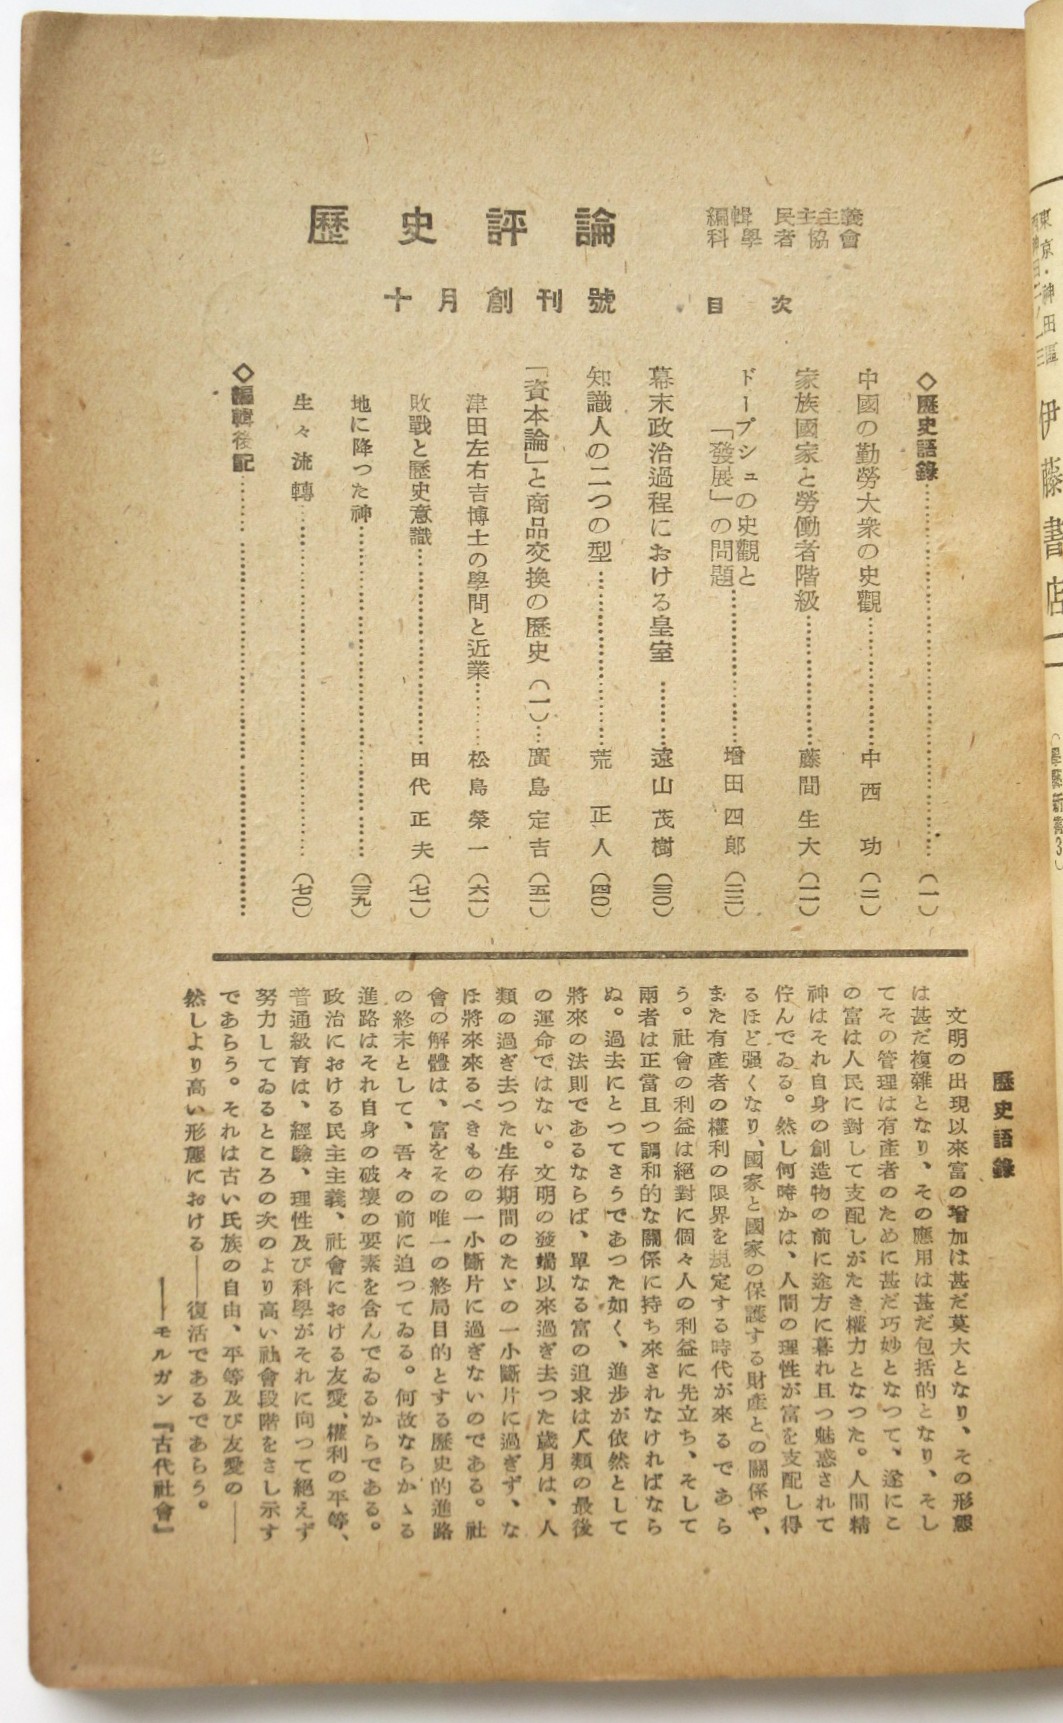 民主主義
科學者協會
編輯
歷史評論
十月創刊號
目次
◇歷史語錄……(一)
中國の勤勞大衆の史觀……中西功(二)
家族國家と勞働者階級……藤間生大(一一)
ドープシュの史觀と
「發展」の問題……增田四郎(二二)
幕末政治過程における皇室……遠山茂樹(三〇)
知識人の二つの型……荒正人(四〇)
「資本論」と商品交換の歷史(一)…廣島定吉(五一)
津田左右吉博士の學問と近業……松島榮一(六一)
敗戰と歷史意識……田代正夫(七一)
地に降つた神……(三九)
生々流轉……(七〇)
◇編輯後記……
歷史語錄
文明の出現以來富の增加は甚だ莫大となり、その形態
は甚だ複雜となり、その應用は甚だ包括的となり、そし
てその管理は有產者のために甚だ巧妙となつて、遂にこ
の富は人民に對して支配しがたき權力となつた。人間精
神はそれ自身の創造物の前に途方に暮れ且つ魅惑されて
佇んでゐる。然し何時かは、人間の理性が富を支配し得
るほど强くなり、國家と國家の保護する財產との關係や、
また有產者の權利の限界を規定する時代が來るであら
う。社會の利益は絕對に個々人の利益に先立ち、そして
兩者は正當且つ調和的な關係に持ち來されなければなら
ぬ。過去にとつてさうであつた如く、進步が依然として
將來の法則であるならば、單なる富の追求は人類の最後
の運命ではない。文明の發端以來過ぎ去つた歲月は、人
類の過ぎ去つた生存期間のたゞの一小斷片に過ぎず、な
ほ將來來るべきものの一小斷片に過ぎないのである。社
會の解體は、富をその唯一の終局目的とする歷史的進路
の終末として、吾々の前に迫つてゐる。何故ならかゝる
進路はそれ自身の破壞の要素を含んでゐるからである。
政治における民主主義、社會における友愛、權利の平等、
普通級育は、經驗、理性及び科學がそれに向つて絕えず
努力してゐるところの次のより高い社會段階をさし示す
であらう。それは古い氏族の自由、平等及び友愛の——
然しより高い形態における——復活であるであらう。
——モルガン『古代社會』
東京・神田區
伊藤書店